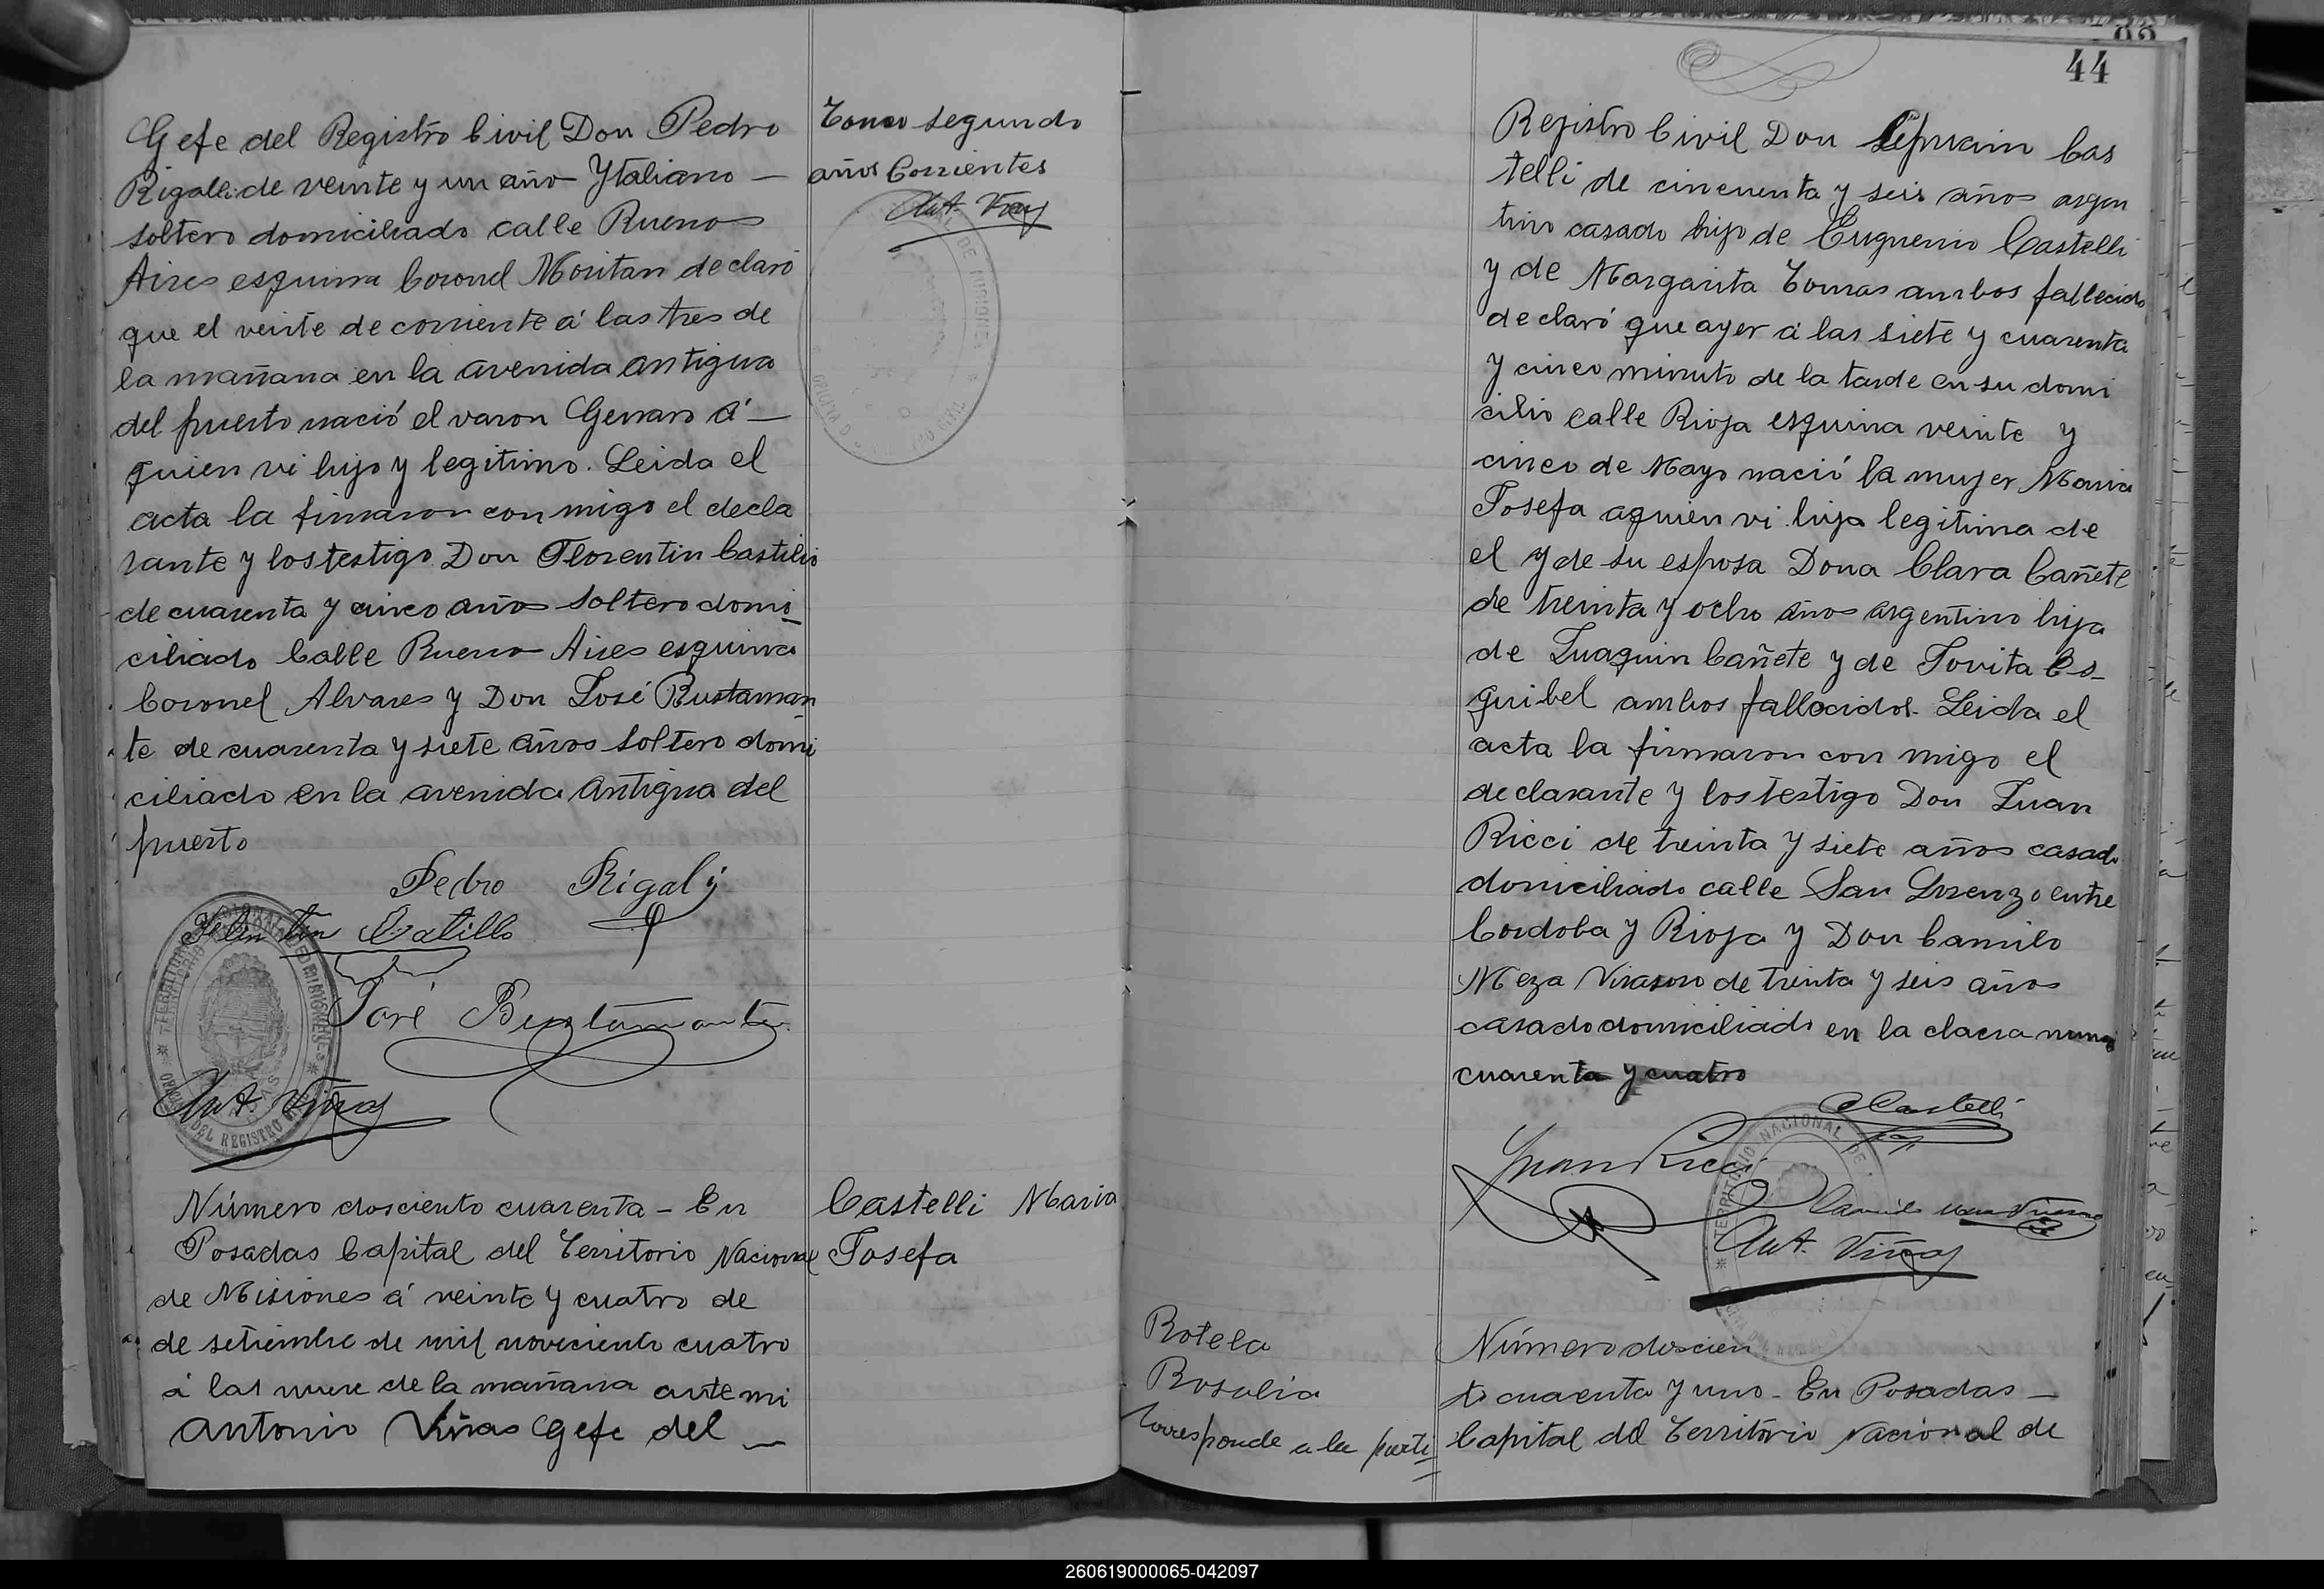 44
Gefe del Registro Civil Don Pedro
Rigalli de veinte y un año Ytaliano —
soltero domiciliado calle Buenos
Aires esquina Coronel Moritan declaró
que el veinte de corriente á las tres de
la mañana en la avenida antigua
del puerto nació el varon Genaro á —
quien vi hijo y legitimo. Leida el
acta la firmaron con migo el decla
rante y los testigo Don Florentin Castilio
de cuarenta y cinco años soltero domi
ciliado Calle Bueno Aires esquina
Coronel Alvares y Don José Bustaman
te de cuarenta y siete años soltero domi
ciliado en la avenida antigua del
puerto
Pedro Rigalj
Catillo
José Bustamante
Ant. Viñas
Tomo segundo
años Corrientes
Ant. Viñas
Número dosciento cuarenta - En
Posadas Capital del Territorio Nacional
de Misiones á veinte y cuatro de
de setiembre de mil noveciento cuatro
á las nueve de la mañana ante mi
Antonio Viñas Gefe del —
Castelli Maria
Josefa
Registro Civil Don Cas
telli de cincuenta y seis años argen
tino casado hijo de Eugenio Castelli
y de Margarita Tomas ambos fallecido
declaró que ayer á las siete y cuarenta
y cinco minuto de la tarde en su domi
cilio calle Rioja esquina veinte y
cinco de Mayo nació la mujer Maria
Josefa aquien vi hija legitima de
el y de su esposa Dona Clara Cañete
de treinta y ocho años argentino hija
de Juaquin Cañete y de Jovita Es
quibel ambos fallecidos. Leida el
acta la firmaron con migo el
declarante y los testigo Don Juan
Ricci de treinta y siete años casado
domiciliado calle San Lorenzo entre
Cordoba y Rioja y Don Camilo
Meza Virasoro de treinta y seis años
casado domiciliado en la clacra
cuarenta y cuatro
Castelli
Juan Ricci
Ant. Viñas
Rotela
Rosalia
Corresponde a la parte
Número doscien
to cuaenta y uno - En Posadas —
Capital del Territorio Nacional de
260619000065-042097